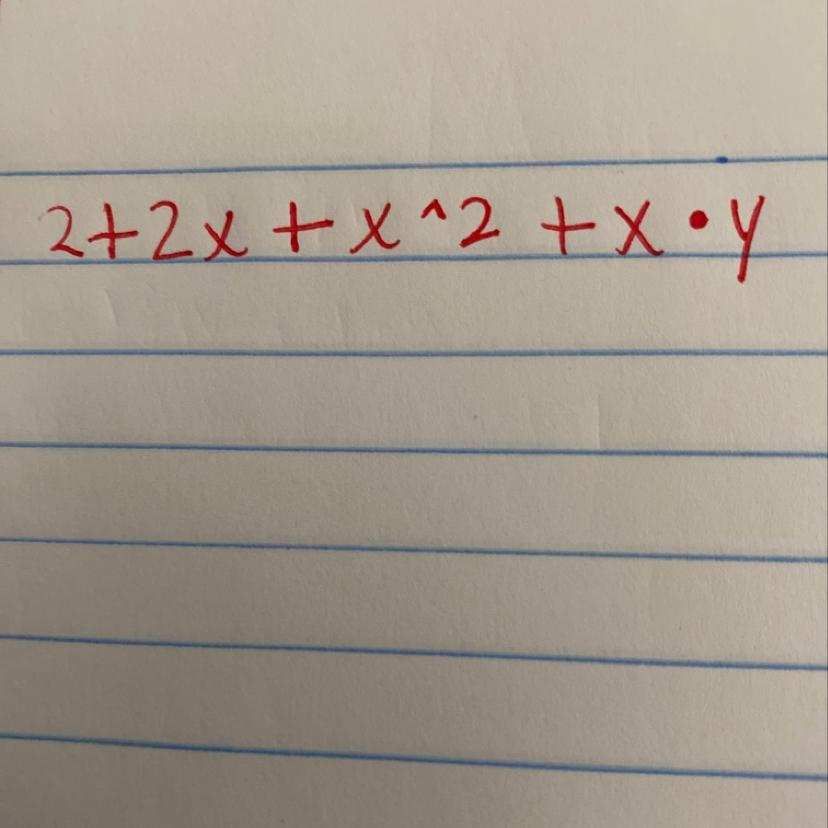 2+2x + x^2 + x • y